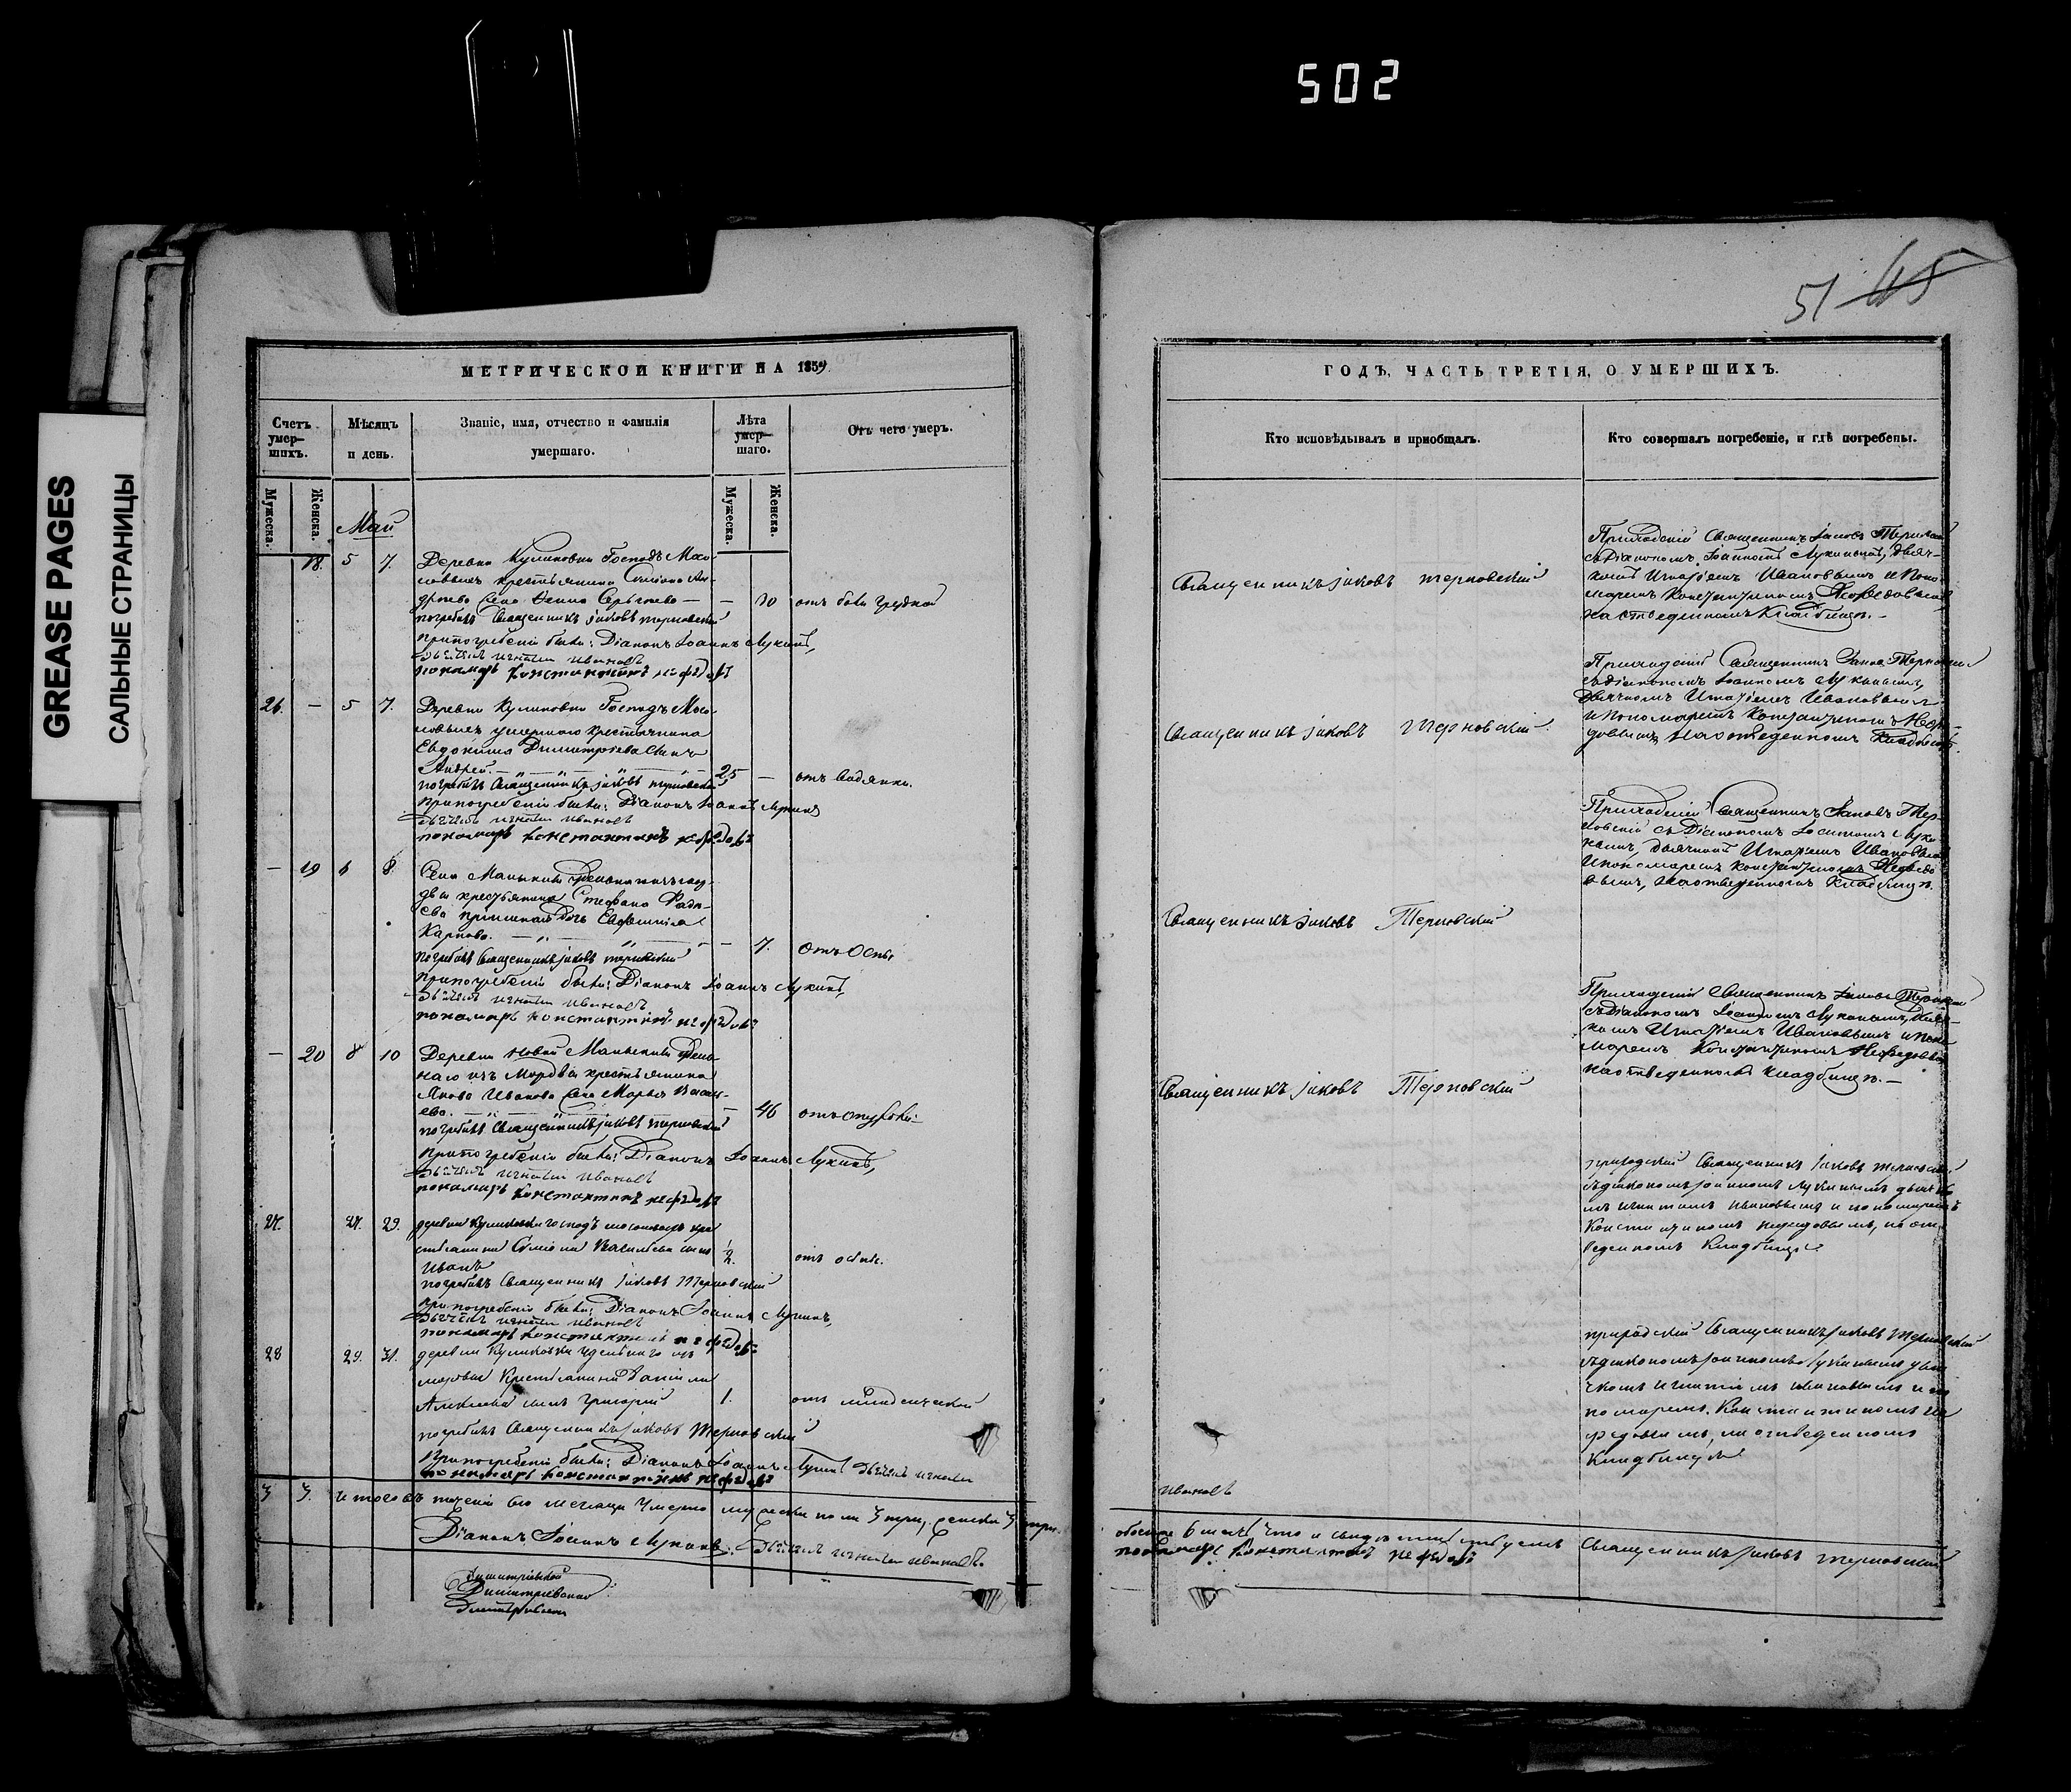 502
GREASE PAGES
САЛЬНЫЕ СТРАНИЦЫ
51 45
МЕТРИЧЕСКОЙ КНИГИ НА 1859
Счетъ умер-шихъ.
Мѣсяцъ и день.
Званіе, имя, отчество и фамилія умершаго.
Лѣта умер-шаго.
Отъ чего умеръ.
Мужеска.
Женска.
Мужеска.
Женска.
Май
18. 5 7. Деревни Куликовки Господъ Мас-
ловыхъ крестьянина Симіона Ан-
дреева жена Ксенія Сергѣева — — 70 отъ боли грудной
погребалъ Священникъ Іаковъ Терновскій
При погребеніи были: Діаконъ Іоаннъ Лукинъ,
Дьячекъ Игнатій Ивановъ
пономарь Константинъ Нефедовъ
26. — 5 7. Деревни Куликовки Господъ Мас-
ловыхъ умершаго крестьянина
Евдокима Димитріева сынъ
Андрей. 25 — отъ водянки.
погребалъ Священникъ Іаковъ Терновскій
При погребеніи были: Діаконъ Іоаннъ Лукинъ
Дьячекъ Игнатій Ивановъ
пономарь Константинъ Нефедовъ
— 19 6 8
крестьянина Стефана
дочь Евфимія
Карпова. — 7. отъ Оспы
погребалъ Священникъ Іаковъ Терновскій
При погребеніи были: Діаконъ Іоаннъ Лукинъ,
Дьячекъ Игнатій Ивановъ
пономарь Константинъ Нефедовъ
— 20 8 10 Деревни Новой
изъ Мордвы крестьянина
Якова Иванова жена Марья
— 46
погребалъ Священникъ Іаковъ Терновскій
При погребеніи были: Діаконъ Іоаннъ Лукинъ,
Дьячекъ Игнатій Ивановъ
пономарь Константинъ Нефедовъ
27. 27. 29. деревни Куликовки господъ Масловыхъ кре
стьянина Симіона Васильева сынъ
Иванъ 1/2. отъ оспы.
погребалъ Священникъ Іаковъ Терновскій
При погребеніи были: Діаконъ Іоаннъ Лукинъ,
Дьячекъ Игнатій Ивановъ
пономарь Константинъ Нефедовъ
28 29. 31. деревни Куликовки удельнаго изъ
мордвы Крестьянина Даніила
Алексеева сынъ Григорій 1. отъ младенческой
погребалъ Священникъ Іаковъ Терновскій
При погребеніи были: Діаконъ Іоаннъ Лукинъ Дьячекъ Игнатій
пономарь Константинъ Нефедовъ
3 3. Итого въ теченіи сего месяца умерло мужеска пола 3 три, женска 3 три.
Діаконъ Іоаннъ Лукинъ. Дьячекъ Игнатій Ивановъ.
ГОДЪ, ЧАСТЬ ТРЕТІЯ, О УМЕРШИХЪ.
Кто исповѣдывалъ и пріобщалъ.
Кто совершалъ погребеніе, и гдѣ погребены.
Священникъ Іаковъ Терновскій
Приходскій Священникъ Іаковъ Терновскій
съ Діакономъ Іоанномъ Лукинымъ, Дьяч-
комъ Игнатіемъ Ивановымъ и Поно
маремъ Константиномъ Нефедовымъ
на отведенномъ Кладбищѣ.
Священникъ Іаковъ Терновскій
Приходскій Священникъ Іаковъ Терновскій
съ діакономъ Іоанномъ Лукинымъ,
Дьячкомъ Игнатіемъ Ивановымъ
и Пономаремъ Константиномъ Нефе-
довымъ, на отведенномъ Кладбищѣ.
Священникъ Іаковъ Терновскій
Приходскій Священникъ Іаковъ Тер-
новскій съ Діакономъ Іоанномъ Луки
нымъ, Дьячкомъ Игнатіемъ Ивановымъ
и Пономаремъ Константиномъ Нефедо
вымъ, на отведенномъ Кладбищѣ.
Священникъ Іаковъ Терновскій
Приходскій Священникъ Іаковъ Терновскій
съ Діакономъ Іоанномъ Лукинымъ, Дьяч-
комъ Игнатіемъ Ивановымъ и Поно
маремъ Константиномъ Нефедовымъ
на отведенномъ кладбищѣ.—
приходскій Священникъ Іаковъ Терновскій
съ діакономъ Іоанномъ Лукинымъ дьячко
мъ Игнатіемъ Ивановымъ и пономаремъ
Константиномъ Нефедовымъ, на от-
веденномъ Кладбище
приходскій Священникъ Іаковъ Терновскій
съ діакономъ Іоанномъ Лукинымъ дья
чкомъ Игнатіемъ Ивановымъ и по
номаремъ Константиномъ Не
федовымъ, на отведенномъ
Кладбище
Ивановъ
обоего 6 шесть что и свидетельствуемъ Священникъ Іаковъ Терновскій
пономарь Константинъ Нефедовъ